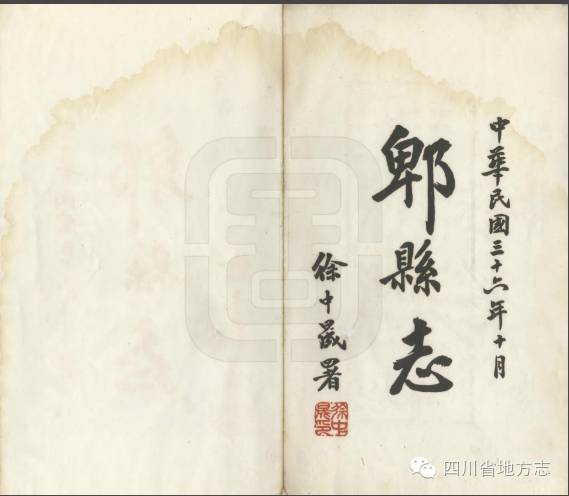 中華民國三十六年十月
郫縣志
徐中晟署
四川省地方志